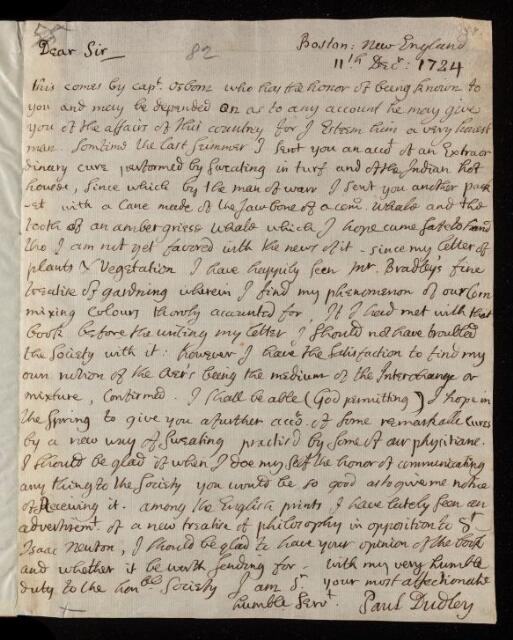 Boston: New England
Dear Sir 82 11th Decr: 1724
this comes by capt. Osborn who has the honor of being known to
you and may be depended on as to any account he may give
you of the affairs of this country for I Esteem him a very honest
man. Sometime the last Summer I sent you an acct of an Extraor
dinary cure performed by Sweating in turf and of the Indian hot
houses, since which by the man of warr I sent you another pack
-et with a Cane made of the Jaw bone of a com. whale and the
tooth of an ambergriese whale which I hope came safe to hand
tho I am not yet favored with the news of it - since my letter of
plants & Vegetation I have happily seen Mr. Bradley's fine
treatise of gardning wherein I find my phenomenon of our Corn
mixing colours thorowly accounted for, If I had met with that
book before the writing my letter I should not have troubled
the Society with it: however I have the Satisfaction to find my
own notion of the Aer's being the medium of the Interchange or
mixture, Confirmed. I shall be able (God permitting) I hope in
the Spring to give you a further acct. of some remarkable Cures
by a new way of Sweating practised by some of our physitians.
I should be glad if when I doe my self the honor of communicating
any thing to the Society you would be so good as to give me notice
of Receiving it. among the English prints I have lately seen an
advertismt. of a new treatise of philosophy in opposition to Sr.
Isaac Newton, I should be glad to have your opinion of the book
and whether it be worth sending for. - with my very humble
duty to the honble Society I am Sr. your most affectionate
humble Servt. Paul Dudley